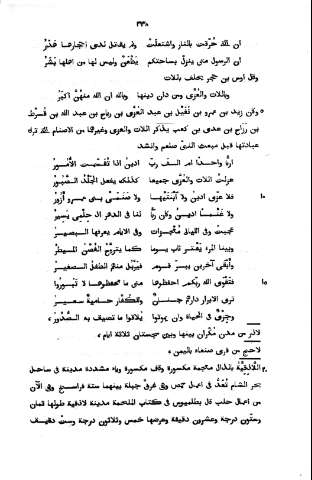 ٣٣٨
ان التى حرقت بالنار واشتعلت ولم يقاتل لدى احجارها هدر
ان الرسول متى ينزل بساحتكم يظعن وليس لها من اهلها بشر
وقال اوس بن حجر يحلف باللات
وباللات والعزى ومن دان دينها وبالله ان الله منهن اكبر
وكان زيد بن عمرو بن نفيل بن عبد العزى بن رباح بن عبد الله بن قرط
بن رزاح بن عدى بن كعب يذكر اللات والعزى وغيرها من الاصنام لله ترك
عبادتها قبل مبعث النبى صلعم وانشد
اربا واحدا ام الف رب ادين اذا تقسمت الامور
عزلت اللات والعزى جميعا كذلك يفعل الجلد الصبور
١٠ فلا عزى ادين ولا ابنتيها ولا صنمى بنى عمرو ازور
ولا غنما ادين وكان ربا لنا فى الدهر اذ حلمى يسير
عجبت وفى الليالى معجبات وفى الايام يعرفها البصير
وبينا المرء يعثر ثاب يوما كما يتروح الغصن المطير
وابقى آخرين ببر قوم فيربل منهم الطفل الصغير
١٥ فتقوى الله ربكم احفظوها متى ما تحفظوها لا تبوروا
ترى الابرار دارهم جنان وللكفار حامية سعير
وخزى فى الحياة وان يموتوا يلاقوا ما تضيق به الصدور،
لاذر من مدن مكران بينها وبين سجستان ثلاثة ايام،
لاحج من قرى صنعاء باليمن،
٢٠ اللاذقية بالذال معجمة مكسورة وقاف مكسورة وياء مشددة مدينة فى ساحل
بحر الشام تعد فى اعمال حمص وهى غربى جبلة بينهما ستة فراسخ وهى الآن
من اعمال حلب قال بطلميوس فى كتاب الملحمة مدينة لاذقية طولها ثمان
وستون درجة وعشرون دقيقة وعرضها خمس وثلاثون درجة وست دقائق